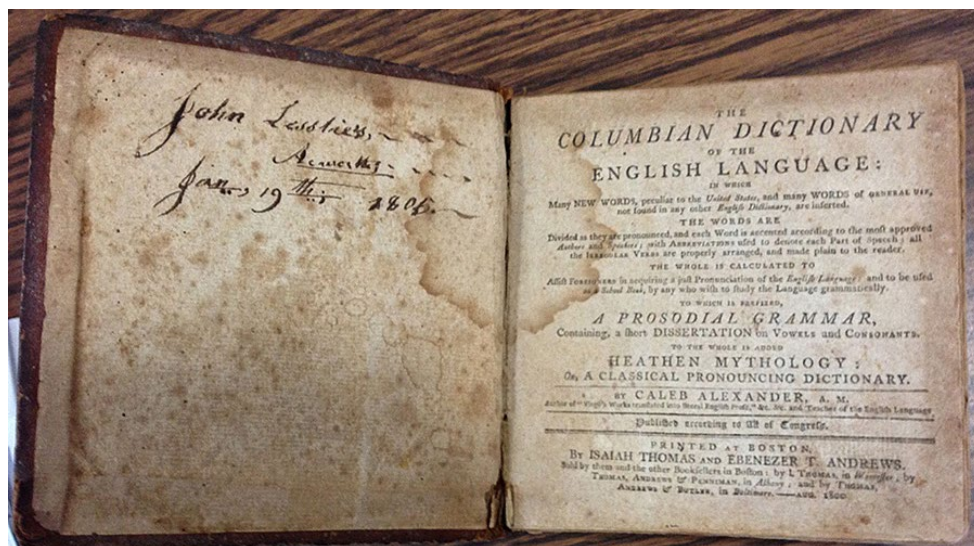 John Lesslies,
Acworth
Jan. 19th. 180
THE
COLUMBIAN DICTIONARY
OF THE
ENGLISH LANGUAGE:
IN WHICH
Many NEW WORDS, peculiar to the United States, and many WORDS of GENERAL USE,
not found in any other English Dictionary, are inserted.
THE WORDS ARE
Divided as they are pronounced, and each Word is accented according to the most approved
Authors and Speakers; with ABBREVIATIONS used to denote each Part of Speech; all
the IRREGULAR VERBS are properly arranged, and made plain to the reader.
THE WHOLE IS CALCULATED TO
Assist FOREIGNERS in acquiring a just Pronunciation of the English Language; and to be used
as a School Book, by any who wish to study the Language grammatically.
TO WHICH IS PREFIXED,
A PROSODIAL GRAMMAR,
Containing, a short DISSERTATION on VOWELS and CONSONANTS.
TO THE WHOLE IS ADDED
HEATHEN MYTHOLOGY:
Or, A CLASSICAL PRONOUNCING DICTIONARY.
BY CALEB ALEXANDER, A. M.
Author of "Virgil's Works translated into literal English Prose," &c. &c. and Teacher of the English Language
Published according to Act of Congress.
PRINTED AT BOSTON,
BY ISAIAH THOMAS AND EBENEZER T. ANDREWS.
Sold by them and the other Booksellers in Boston; by I. THOMAS, in Worcester; by
THOMAS, ANDREWS & PENNIMAN, in Albany; and by THOMAS,
ANDREWS & BUTLER, in Baltimore.—AUG. 1800